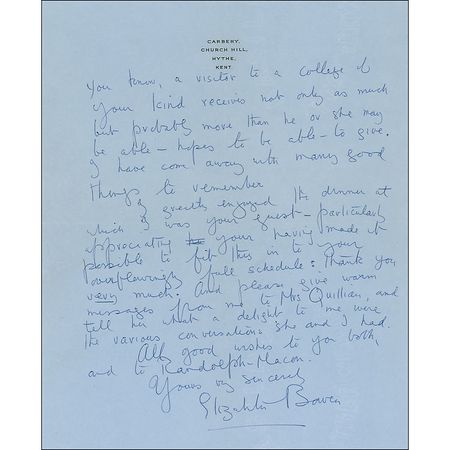 CARBERY,
CHURCH HILL,
HYTHE,
KENT.
You know, a visitor to a college of
your kind receives not only as much
but probably more than he or she may
be able – hopes to be able – to give.
I have come away with many good
things to remember
I greatly enjoyed the dinner at
which I was your guest – particularly
appreciating your having made it
possible to fit this in to your
overflowingly full schedule: Thank you
very much. And please give warm
messages from me to Mrs Quillian, and
tell her what a delight to me were
the various conversations she and I had.
All good wishes to you both,
and to Randolph-Macon.
Yours very sincerely
Elizabeth Bowen